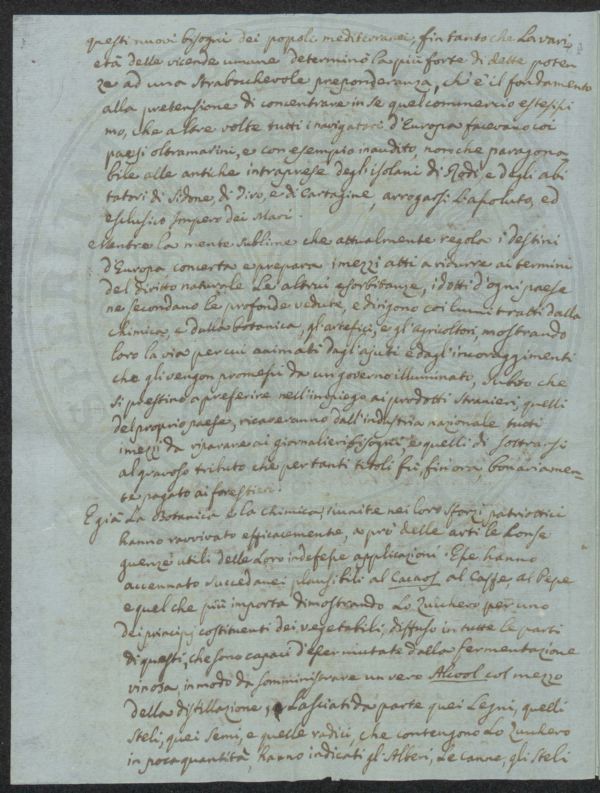 questi nuovi bisogni dei popoli mediterranei, fintanto che la vari,
età delle vicende umane determinò la più forte di dette poten
ze ad una strabocchevole preponderanza, ch'è il fondamento
alla pretensione di concentrare in se quel commercio estesissi
mo, che altre volte tutti i navigatori d'Europa facevano coi
paesi oltramarini, e con esempio inaudito, non che paragona
bile alle antiche intraprese degl'isolani di Rodi, e degli abi
tatori di Sidone, di Tiro, e di Cartagine, arrogarsi l'assoluto, ed
esclusivo impero dei Mari.
Mentre la mente sublime che attualmente regola i destini
d'Europa concerta e prepara i mezzi atti a ridurre ai termini
del diritto naturale le altrui esorbitanze, i dotti d'ogni paese
ne secondano le profonde vedute, e dirigono coi lumi tratti dalla
chimica, e dalla botanica, gl'artefici, e gl'agricoltori, mostrando
loro la via per cui animati dagl'ajuti e dagl'incoraggimenti
che gli vengon promessi da un governo illuminato, subito che
si prestino a preferire nell'impiego ai prodotti stranieri, quelli
del proprio paese, ricaveranno dall'industria nazionale tutti
i mezzi da riparare ai giornalieri bisogni, e quelli di sottrarsi
al gravoso tributo che per tanti titoli fù, fin'ora, bonariamen-
te pagato ai forestieri.
E già la Botanica e la chimica, riunite nei loro sforzi patriottici
hanno ravvivato efficacemente, a prò delle arti le conse
guenze utili delle loro indefesse applicazioni. Esse hanno
accennato succedanei plausibili al Cacaos al Caffe, al Pepe
e quel che più importa dimostrando lo Zucchero per uno
dei principj costituenti dei vegetabili, diffuso in tutte le parti
di questi, che sono capaci d'esser mutate dalla fermentazione
vinosa, in modo da somministrare un vero Alcool col mezzo
della distillazione, Lasciati da parte quei Legni, quelli
Steli, quei semi, e quelle radici, che contengono lo Zucchero
in poca quantità, hanno indicati gl'Alberi, le canne, gli steli